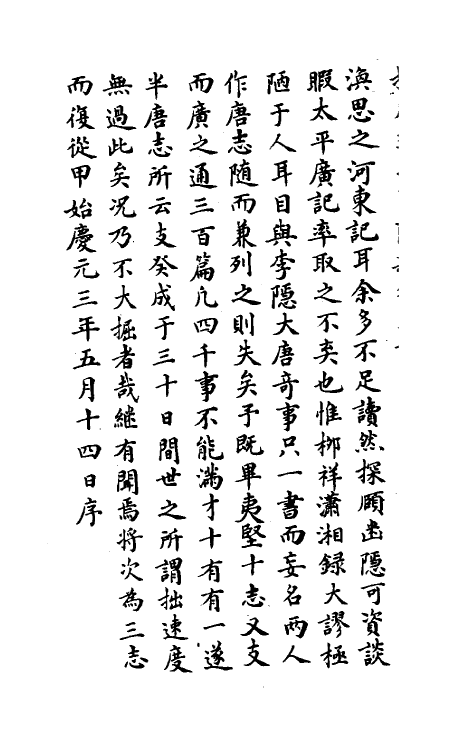 渙思之河東記耳余多不足讀然探頤幽隱可資談
暇太平廣記率取之不棄也惟栁祥瀟湘録大謬極
陋于人耳目與李隱大唐竒事只一書而妄名兩人
作唐志随而兼列之則失矣予既畢夷堅十志又支
而廣之通三百篇凢四千事不能滿才十有有一遂
半唐志所云支癸成于三十日間世之所謂拙速度
無過此矣况乃不大掘者哉継有聞焉将次為三志
而復從甲始慶元三年五月十四日序